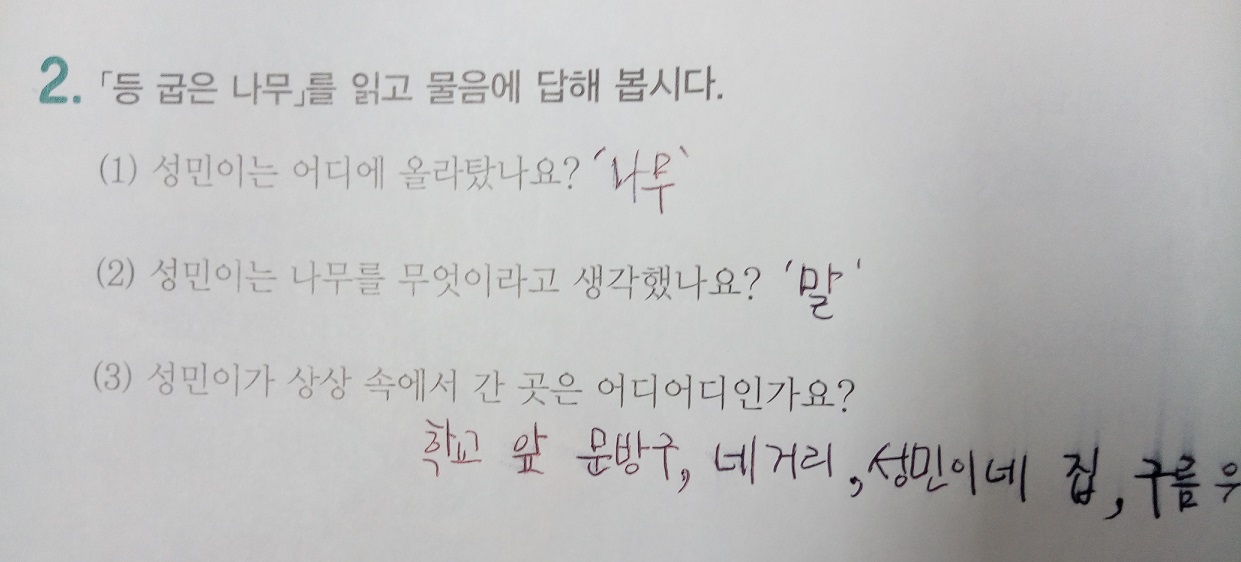 2. 「등 굽은 나무」를 읽고 물음에 답해 봅시다.
(1) 성민이는 어디에 올라탔나요? ‘나무’
(2) 성민이는 나무를 무엇이라고 생각했나요? ‘말’
(3) 성민이가 상상 속에서 간 곳은 어디어디인가요?
학교 앞 문방구, 네거리, 성민이네 집, 구름